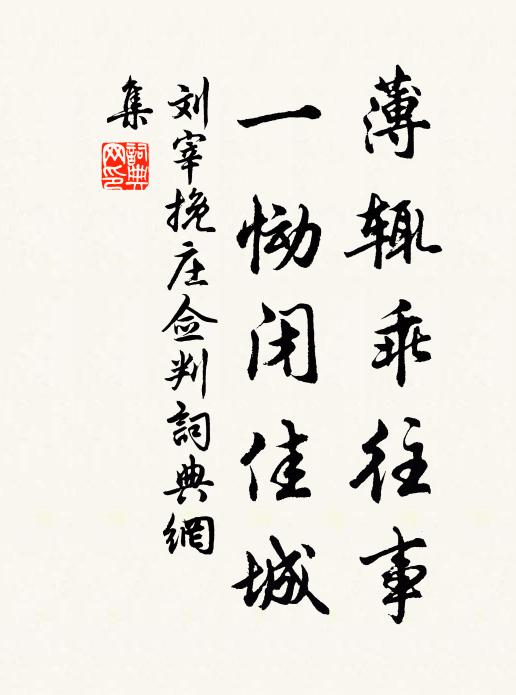 薄辄乖往事
一恸闭佳城
刘宰挽庄佥判詞典網
集
詞典网印